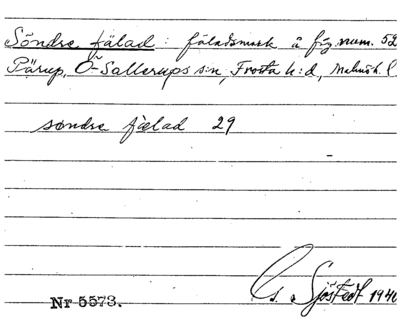 Söndre fälad: fäladsmark å fig. num. 52
Pärup, Ö-Sallerups sn, Frosta h:d, Malmöh. l
søndre fælad 29
G. Sjöstedt 1940
Nr 5573.